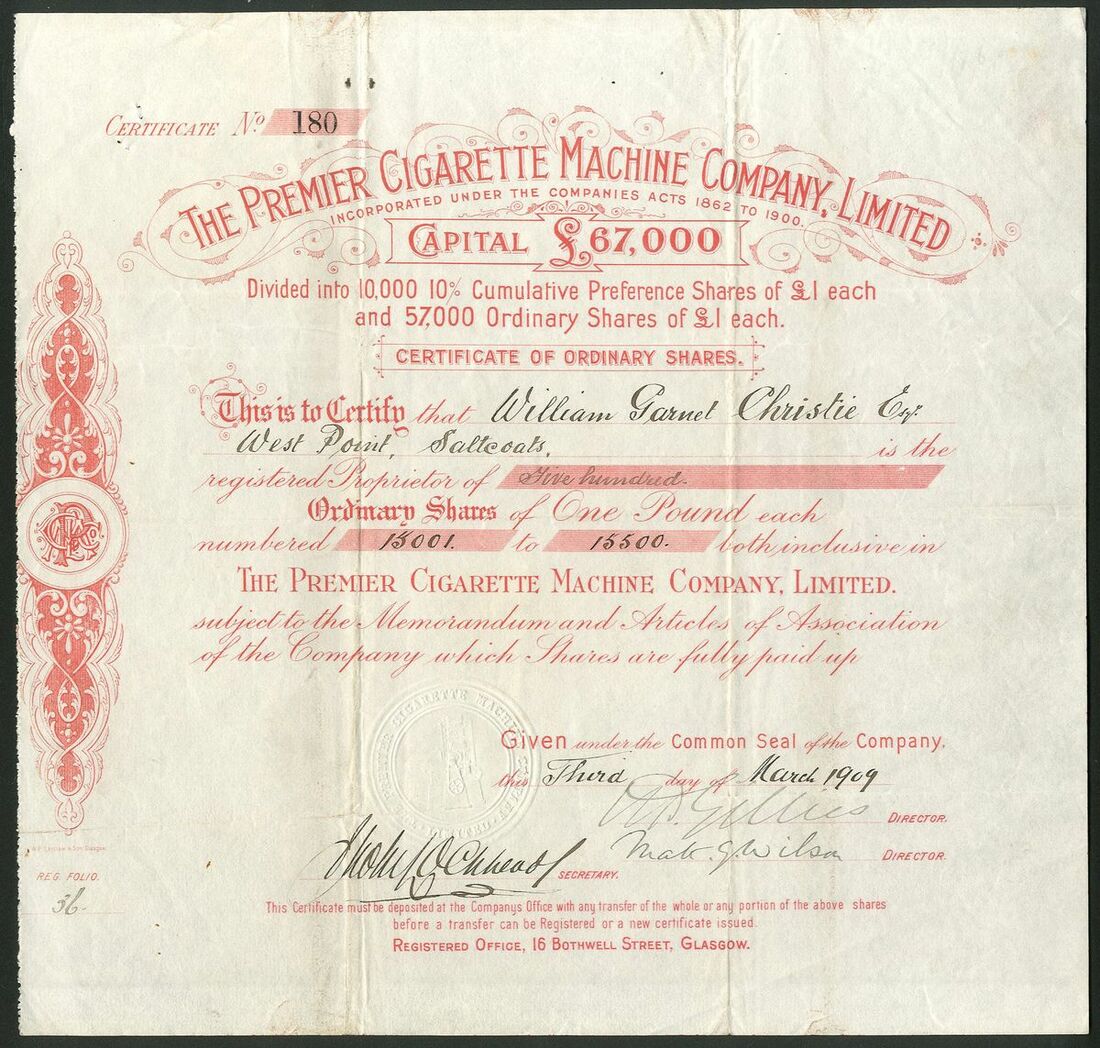 CERTIFICATE No. 180
THE PREMIER CIGARETTE MACHINE COMPANY, LIMITED
INCORPORATED UNDER THE COMPANIES ACTS 1862 TO 1900.
CAPITAL £67,000
Divided into 10,000 10% Cumulative Preference Shares of £1 each
and 57,000 Ordinary Shares of £1 each.
CERTIFICATE OF ORDINARY SHARES.
This is to Certify that William Garnet Christie Esqr.
West Point, Saltcoats, is the
registered Proprietor of Five hundred.
Ordinary Shares of One Pound each
numbered 15001. to 15500. both inclusive in
THE PREMIER CIGARETTE MACHINE COMPANY, LIMITED.
subject to the Memorandum and Articles of Association
of the Company which Shares are fully paid up
THE PREMIER CIGARETTE MACHINE COMPANY LIMITED
Given under the Common Seal of the Company,
this Third day of March 1909
Gillies DIRECTOR.
Wilson DIRECTOR.
SECRETARY.
& Son Glasgow
REG. FOLIO.
36.
This Certificate must be deposited at the Companys Office with any transfer of the whole or any portion of the above shares
before a transfer can be Registered or a new certificate issued.
REGISTERED OFFICE, 16 BOTHWELL STREET, GLASGOW.